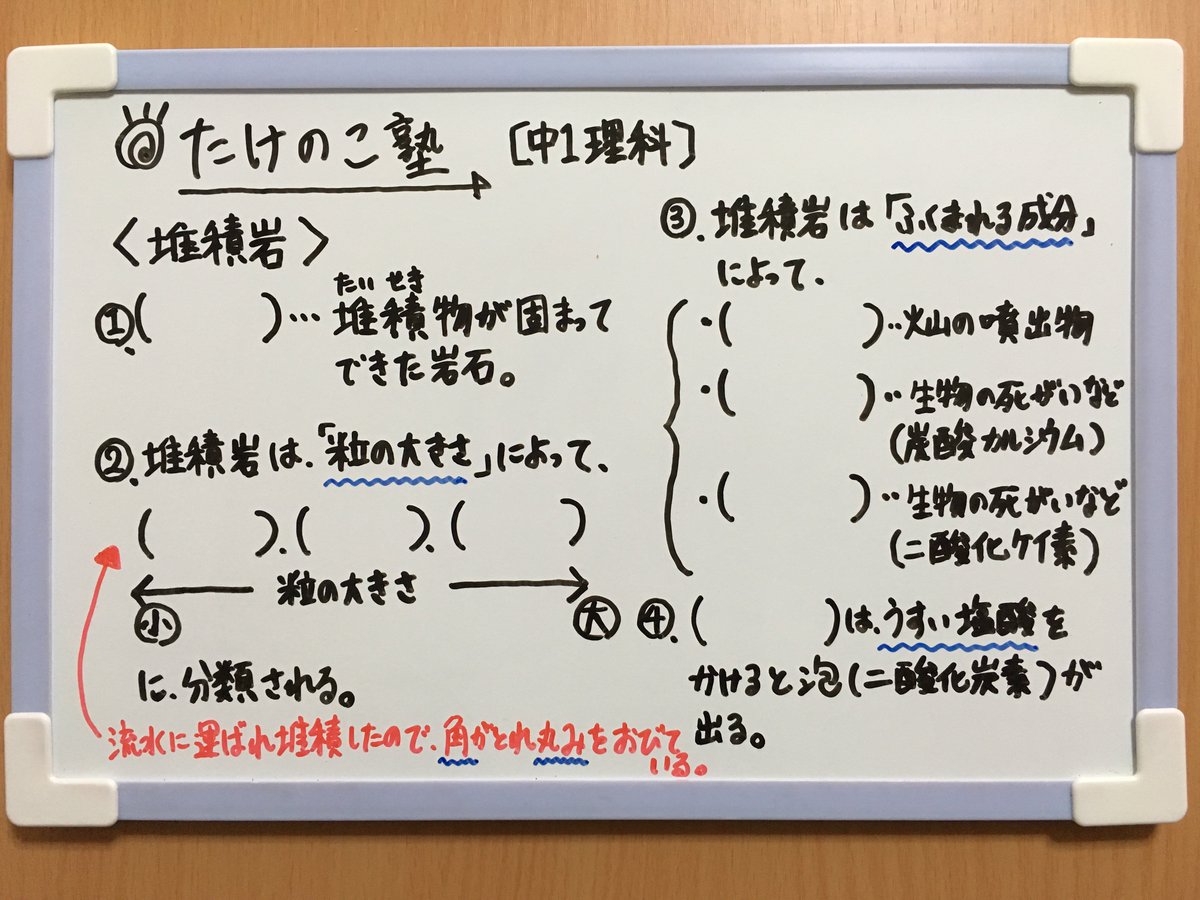 たけのこ塾 [中1理科]
〈堆積岩〉
①.( )…堆積物が固まって
たい せき
できた岩石。
②.堆積岩は、「粒の大きさ」によって、
( )、( )、( )
粒の大きさ
小 大
に、分類される。
流水に運ばれ堆積したので、角がとれ丸みをおびて
いる。
③.堆積岩は「ふくまれる成分」
によって、
・( )‥火山の噴出物
・( )‥生物の死がいなど
(炭酸カルシウム)
・( )‥生物の死がいなど
(二酸化ケイ素)
④.( )は、うすい塩酸を
かけると泡(二酸化炭素)が
出る。